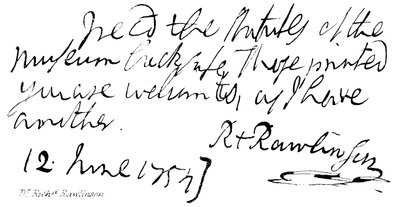 rec'd the Statutes of the
Museum back safe, Those printed
you are welcome to, as I have
another.
Rd Rawlinson
12. June 1754
Dr Richd Rawlinson